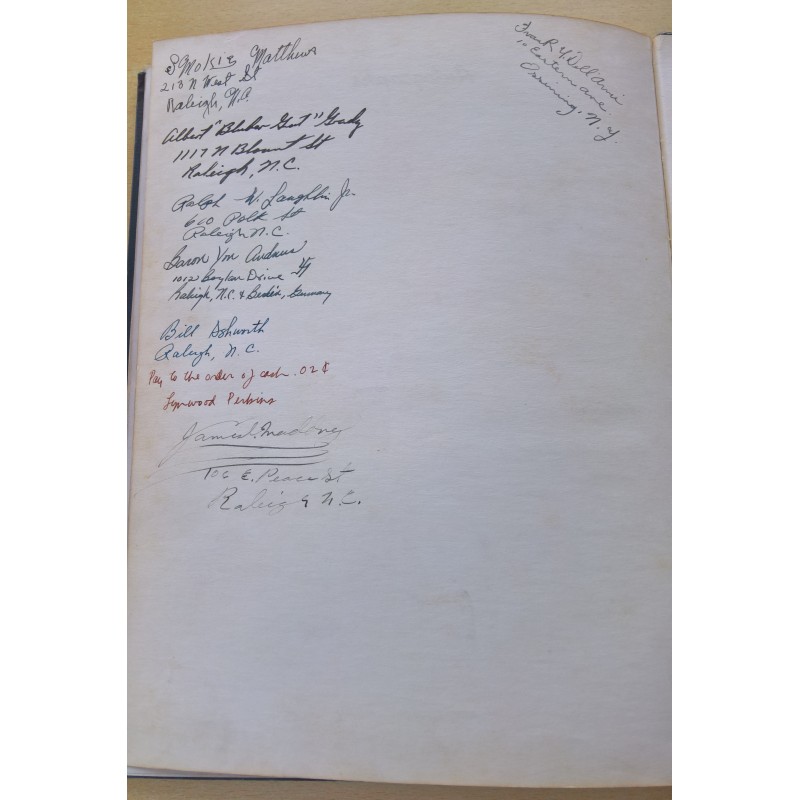 Smokie Matthews
213 N West St
Raleigh, N.C.
Albert "Blubber Gut" Grady
1117 N Blount St
Raleigh, N.C.
Ralph W. Laughlin Jr.
600 Polk St
Raleigh N.C.
Baron Von Andrews
1012 Boylan Drive
Raleigh, N.C. & Berlin, Germany
Bill Ashworth
Raleigh, N.C.
Pay to the order of cash .02¢
Lynwood Perkins
James Maloney
106 E. Peace St
Raleigh N.C.
Frank Y Dell Ami
10 Eastern ave.
Ossining, N.Y.